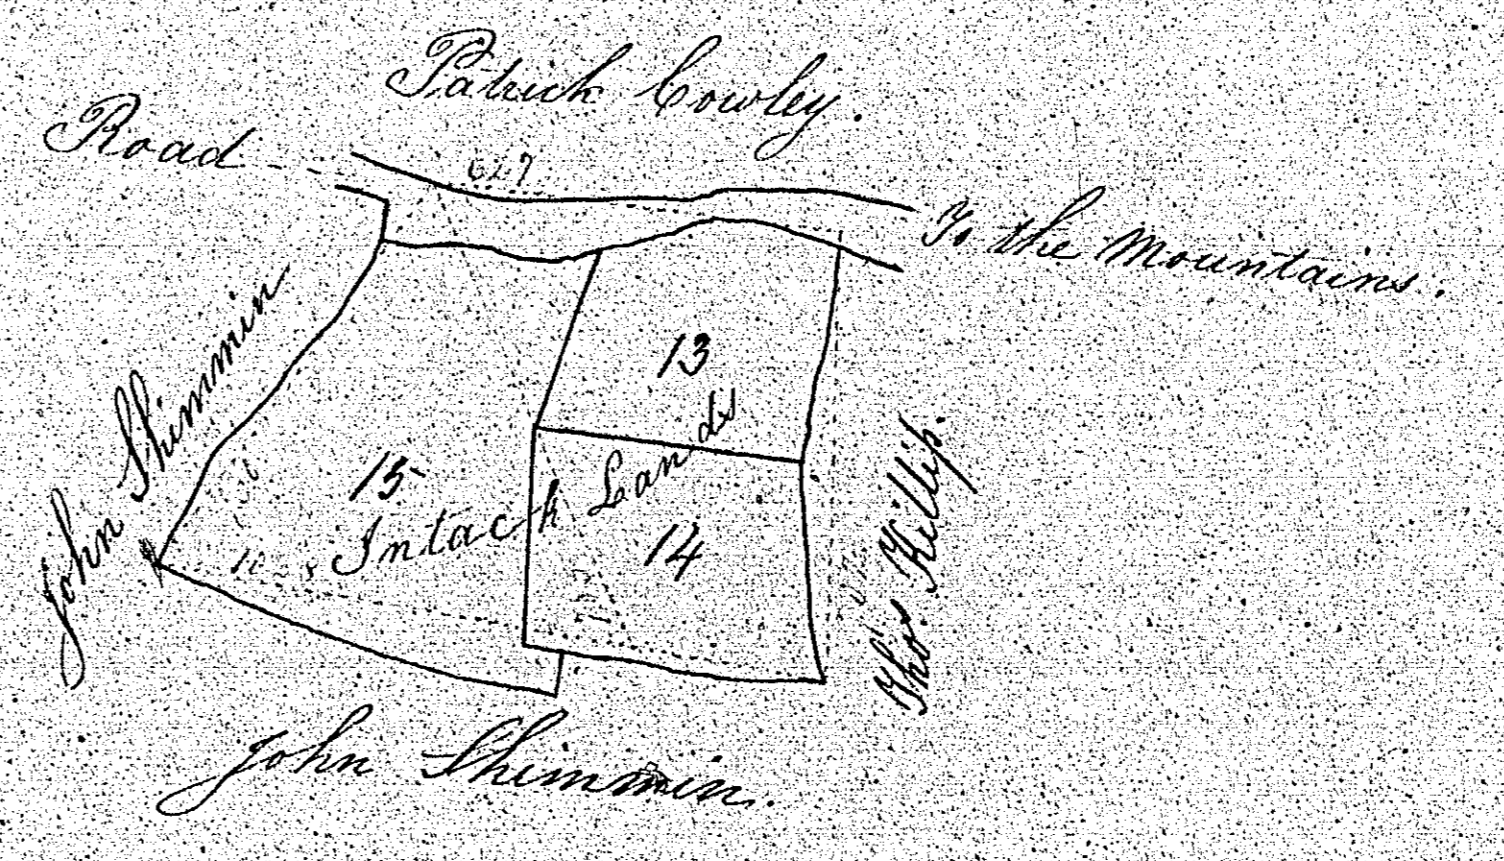 Patrick Cowley.
Road
627
To the Mountains.
John Shimmin
13
15
Intack Lands
14
Thos. Killip.
John Shimmin.